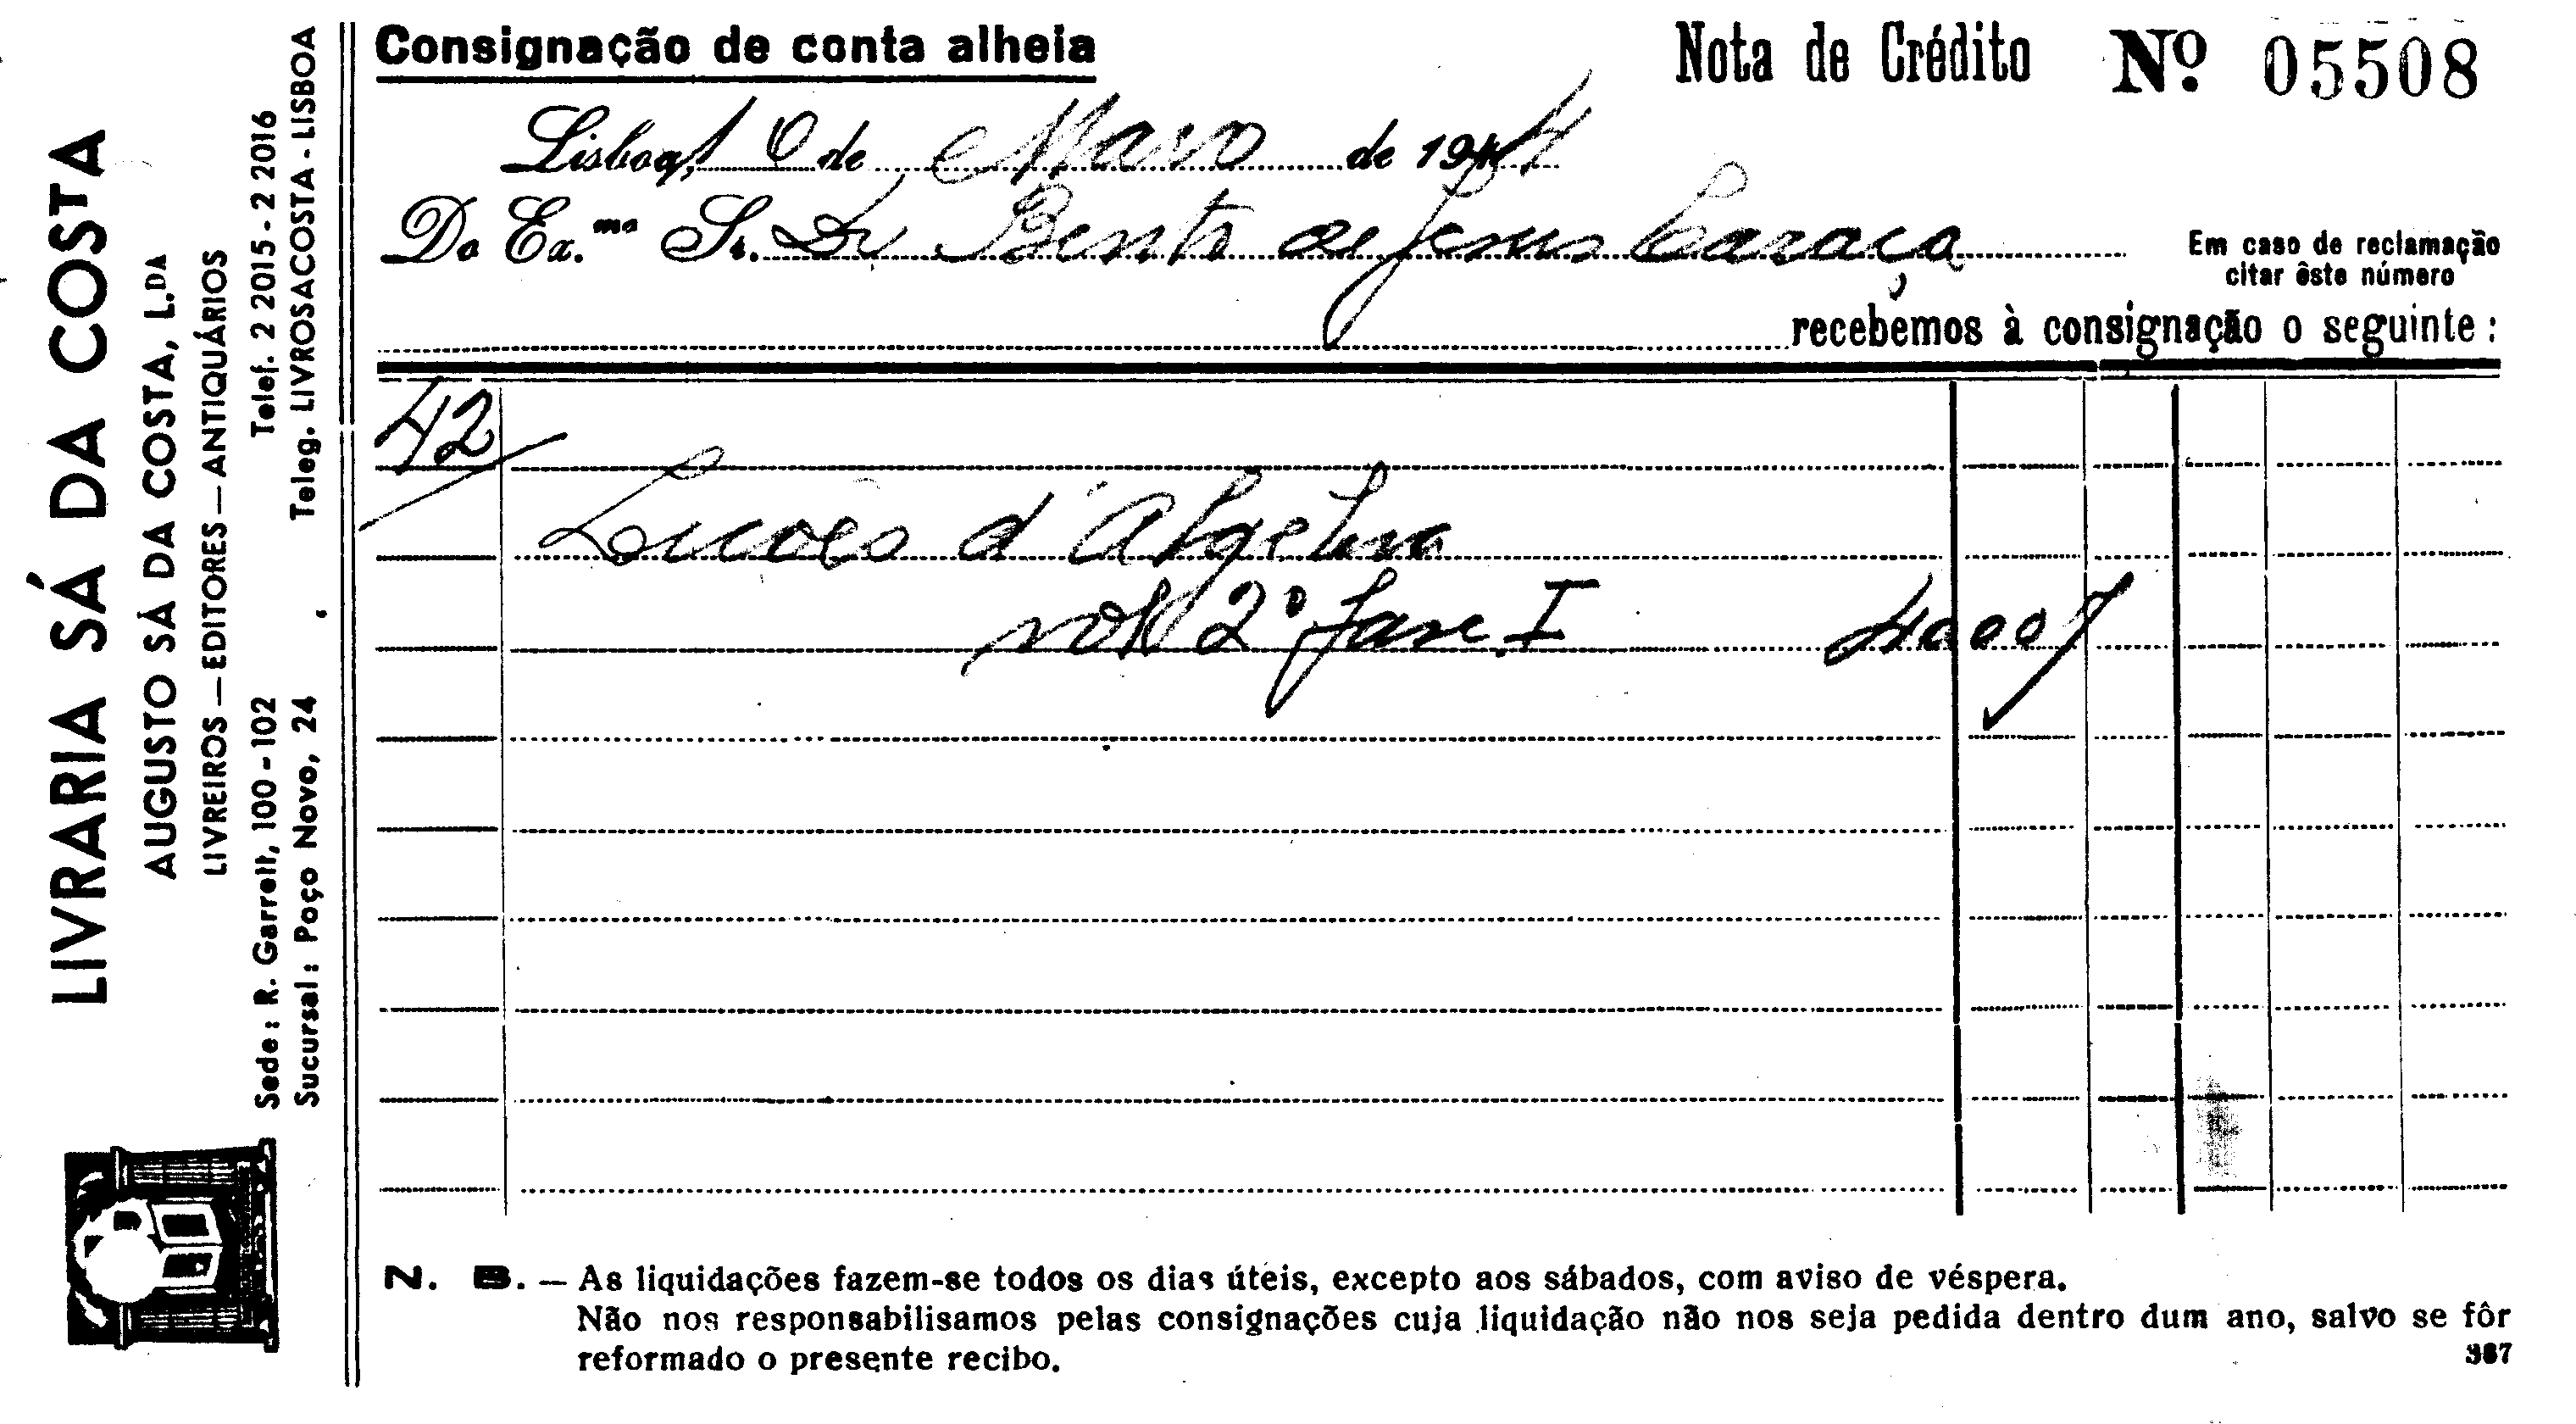 LIVRARIA SÁ DA COSTA
AUGUSTO SÁ DA COSTA, L.DA
LIVREIROS — EDITORES — ANTIQUÁRIOS
Sede: R. Garrett, 100-102 Telef. 2 2015-2 2016
Sucursal: Poço Novo, 24 Teleg. LIVROSACOSTA - LISBOA
Consignação de conta alheia
Nota de Crédito Nº 05508
Lisboa, 10 de Março de 1944
Do Ex.mo Sr. Dr Bento de Jesus Caraça
Em caso de reclamação
citar êste número
recebemos à consignação o seguinte:
42
Licões d'Algebra
vol 2º fasc. I 4000
N. B. — As liquidações fazem-se todos os dias úteis, excepto aos sábados, com aviso de véspera.
Não nos responsabilisamos pelas consignações cuja liquidação não nos seja pedida dentro dum ano, salvo se fôr
reformado o presente recibo.
387